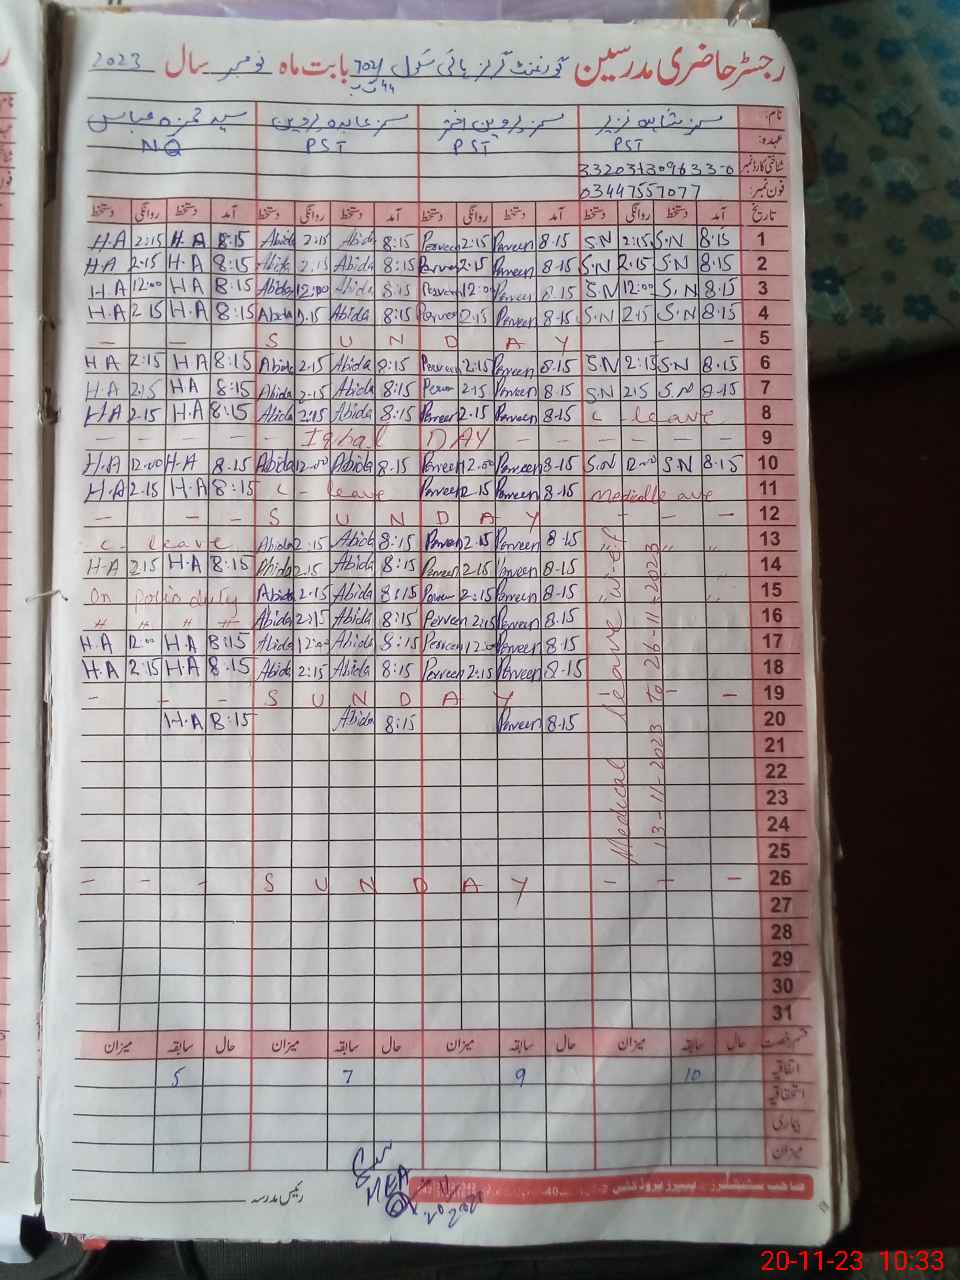 رجسٹر حاضری مدرسین گورنمنٹ گرلز ہائی سکول 702/ بابت ماہ نومبر سال 2023
نام: مسز شاہدہ نزیر مسز پروین اختر مسز عابدہ پروین سید حمزہ عباس
عہدہ: PST PST PST NQ
شناختی کارڈ نمبر 3320313096330
فون نمبر: 03447557077
تاریخ آمد دستخط روانگی دستخط آمد دستخط روانگی دستخط آمد دستخط روانگی دستخط آمد دستخط روانگی دستخط
H.A 2:15 H.A 8:15 Abida 2:15 Abida 8:15 Parveen 2:15 Parveen 8.15 S.N 2:15 S.N 8:15 1
H.A 2.15 H.A 8:15 Abida 2.15 Abida 8:15 Parveen 2.15 Parveen 8.15 S.N 2.15 S.N 8.15 2
H A 12:00 H A 8:15 Abida 12:00 Abida 8:15 Parveen 12:00 Parveen 8.15 S.N 12:00 S.N 8.15 3
H.A 2 15 H.A 8:15 Abida 2.15 Abida 8:15 Parveen 2.15 Parveen 8.15 S.N 2:15 S.N 8.15 4
— — S U N D A Y - - 5
H A 2:15 H A 8:15 Abida 2.15 Abida 8:15 Parveen 2:15 Parveen 8.15 S.N 2:15 S.N 8.15 6
H A 2:15 HA 8:15 Abida 2.15 Abida 8:15 Parveen 2:15 Parveen 8.15 S.N 2:15 S.N 8-15 7
H.A 2.15 H.A 8:15 Abida 2:15 Abida 8:15 Parveen 2.15 Parveen 8-15 C - leave 8
— — — — — Iqbal DAY — — — — — — 9
H.A 12.00 H.A 8.15 Abida 12.00 Abida 8.15 Parveen 12.00 Parveen 8-15 S.N 12.00 S N 8.15 10
H.A 2.15 H.A 8:15 C - leave Parveen 2 15 Parveen 8-15 Medical leave 11
— — — S U N D A Y - - - 12
C- leave Abida 2:15 Abida 8:15 Parveen 2.15 Parveen 8-15 〃 〃 〃 13
H-A 2.15 H.A 8:15 Abida 2.15 Abida 8:15 Parveen 2.15 Parveen 8-15 14
On polio duty Abida 2.15 Abida 8:15 Parveen 2:15 Parveen 8-15 15
〃 〃 〃 〃 Abida 2:15 Abida 8:15 Parveen 2:15 Parveen 8.15 16
H.A 12:00 H A 8:15 Abida 12:00 Abida 8:15 Parveen 12:00 Parveen 8.15 17
H.A 2:15 H A 8.15 Abida 2:15 Abida 8:15 Parveen 2:15 Parveen 8-15 18
- - - S U N D A Y - - - 19
H.A 8:15 Abida 8:15 Parveen 8.15 20
Medical leave w.e.f
13-11-2023 To 26-11-2023
21
22
23
24
25
- - - S U N D A Y - - - 26
27
28
29
30
31
قسم رخصت حال سابقہ میزان حال سابقہ میزان حال سابقہ میزان حال سابقہ میزان
اتفاقیہ 10 9 7 5
استحقاقیہ
بیماری
میزان
رئیس مدرسہ
MEA
20-11-23 10:33